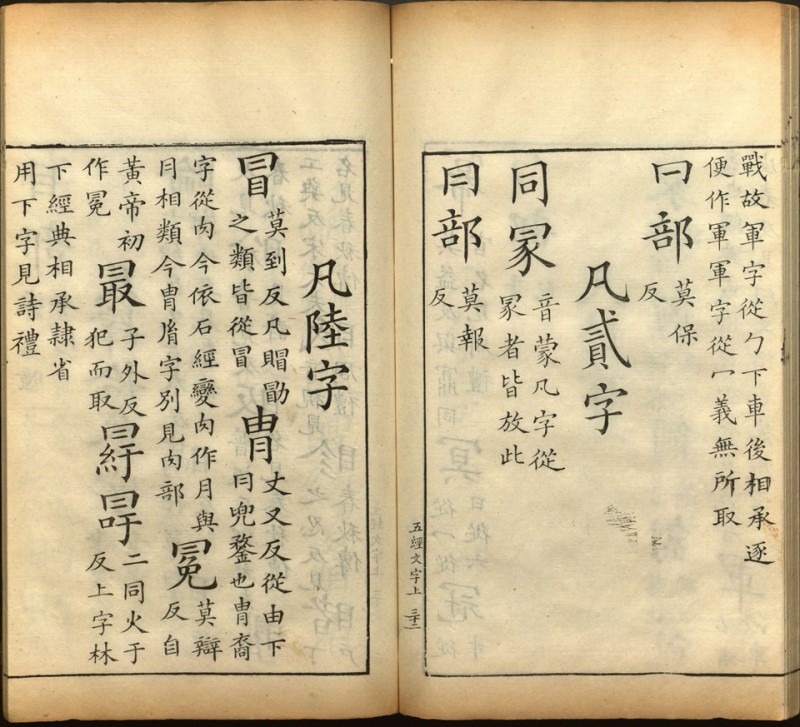 戰故軍字從勹下車後相承逐
便作軍軍字從冖義無所取
𠔼部
莫保
反
凡貳字
同冡
音蒙凡字從
冡者皆放此
冃部
莫報
反
五經文字上 三十二
凡陸字
冒
莫到反凡賵勖
之類皆從冒
冑
丈又反從由下
冃兜鍪也胄裔
字從肉今依石經變肉作月與
冃相類今胄胤字別見肉部
冕
莫辯
反自
黃帝初
作冕
最
子外反
犯而取
冔
二同火于
反上字林
下經典相承隸省
用下字見詩禮